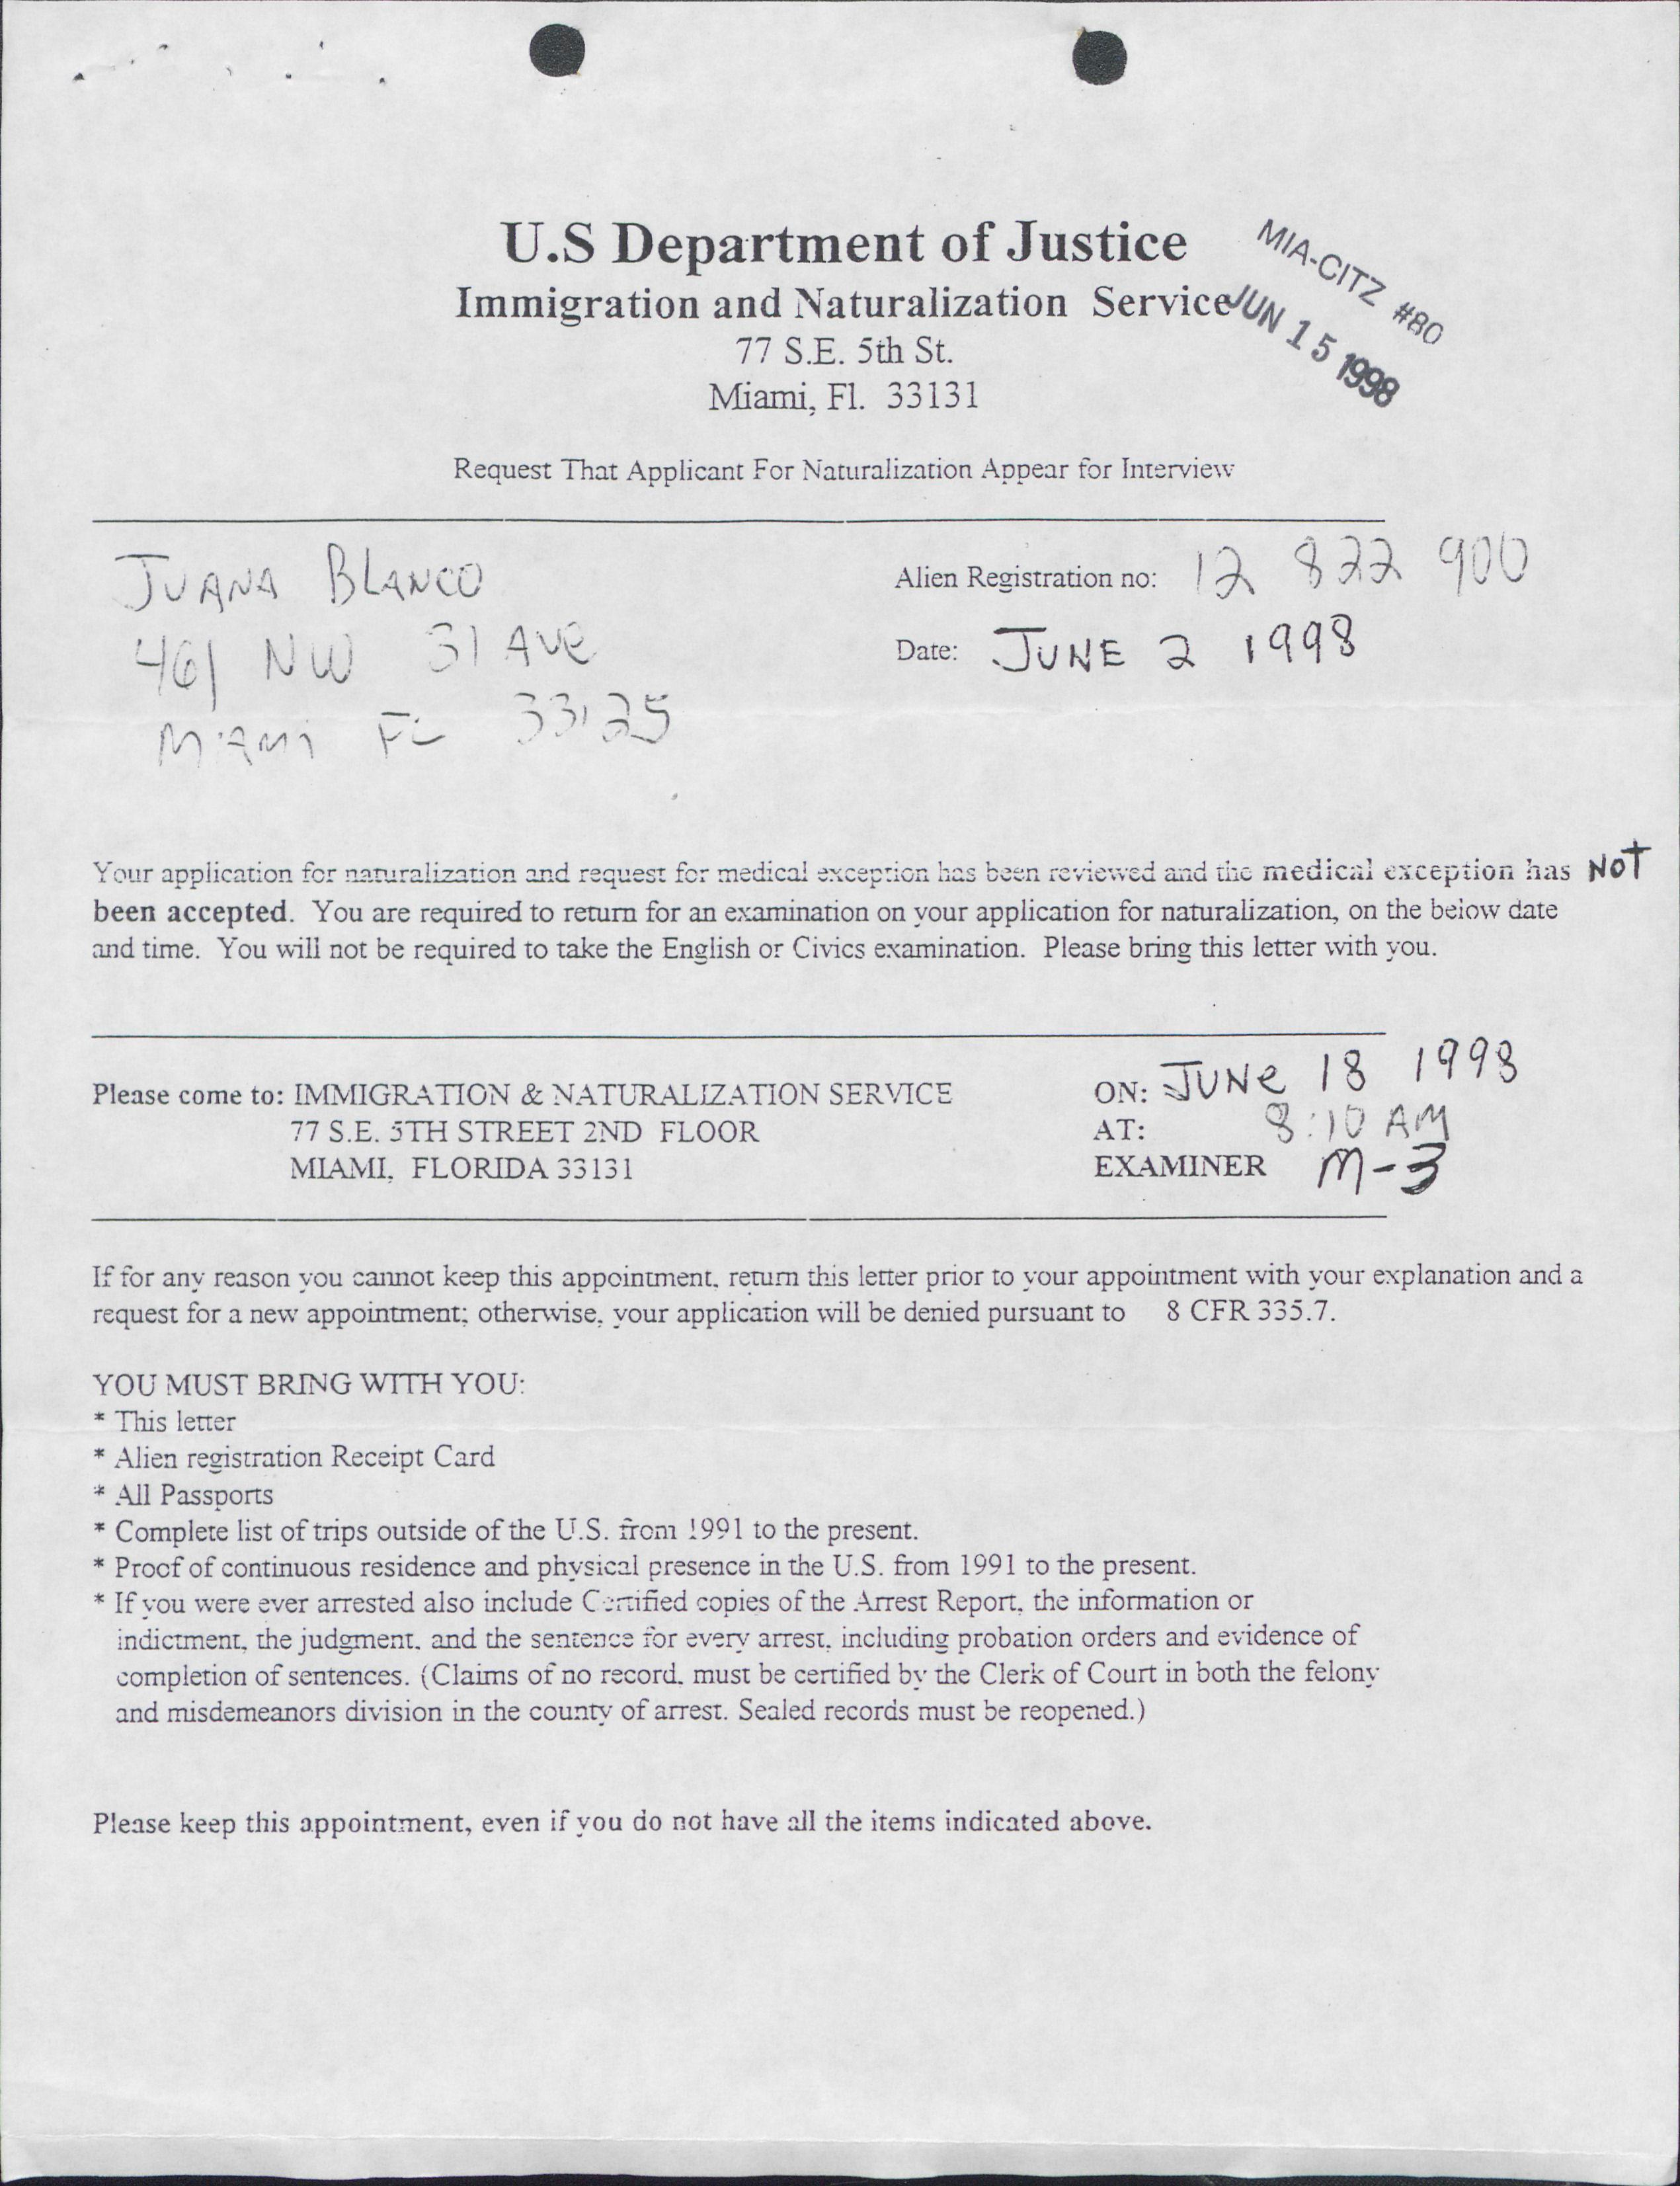 U.S Department of Justice
Immigration and Naturalization Service
77 S.E. 5th St.
Miami, Fl. 33131
MIA-CITZ #80
JUN 15 1998
Request That Applicant For Naturalization Appear for Interview
JUANA BLANCO
461 NW 31 AVE
MIAMI FL 33125
Alien Registration no: 12 822 900
Date: JUNE 2 1998
Your application for naturalization and request for medical exception has been reviewed and the medical exception has NOT
been accepted. You are required to return for an examination on your application for naturalization, on the below date
and time. You will not be required to take the English or Civics examination. Please bring this letter with you.
Please come to: IMMIGRATION & NATURALIZATION SERVICE
77 S.E. 5TH STREET 2ND FLOOR
MIAMI, FLORIDA 33131
ON: JUNE 18 1998
AT: 8:10 AM
EXAMINER M-3
If for any reason you cannot keep this appointment, return this letter prior to your appointment with your explanation and a
request for a new appointment; otherwise, your application will be denied pursuant to 8 CFR 335.7.
YOU MUST BRING WITH YOU:
* This letter
* Alien registration Receipt Card
* All Passports
* Complete list of trips outside of the U.S. from 1991 to the present.
* Proof of continuous residence and physical presence in the U.S. from 1991 to the present.
* If you were ever arrested also include Certified copies of the Arrest Report, the information or
indictment, the judgment, and the sentence for every arrest, including probation orders and evidence of
completion of sentences. (Claims of no record, must be certified by the Clerk of Court in both the felony
and misdemeanors division in the county of arrest. Sealed records must be reopened.)
Please keep this appointment, even if you do not have all the items indicated above.